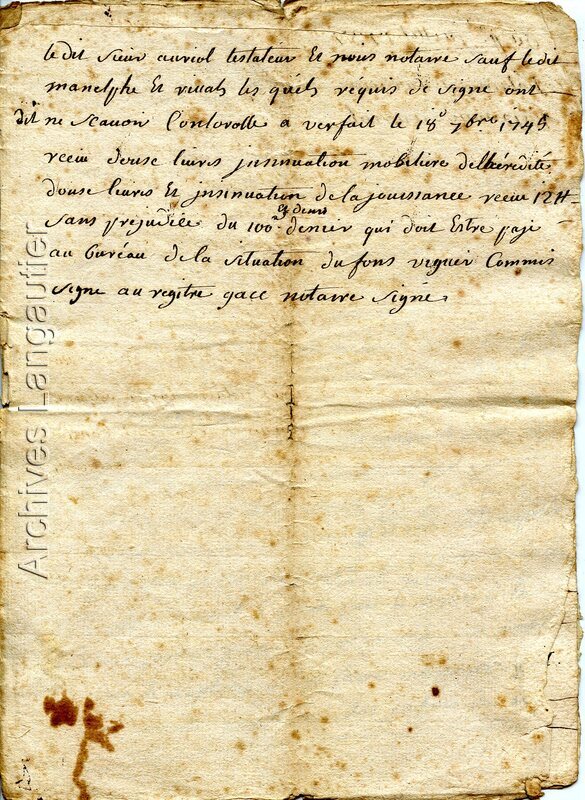 ledit sieur auriol testateur Et nous notaire sauf ledit
manelphe Et vivals les quels requis de signe ont
dit ne scavoir Controrolle a verfait le 18e 7bre 1745
receu douse livres jnsinuation mobiliere delhérédité
douse livres Et jnsinuation de la jouissance receu 12 #
sans prejudice du 100e et demi denier qui doit Estre paje
au bureau de la situation du fons viguier Commis
signe au registre gace notaire signé.
Archives Langautier